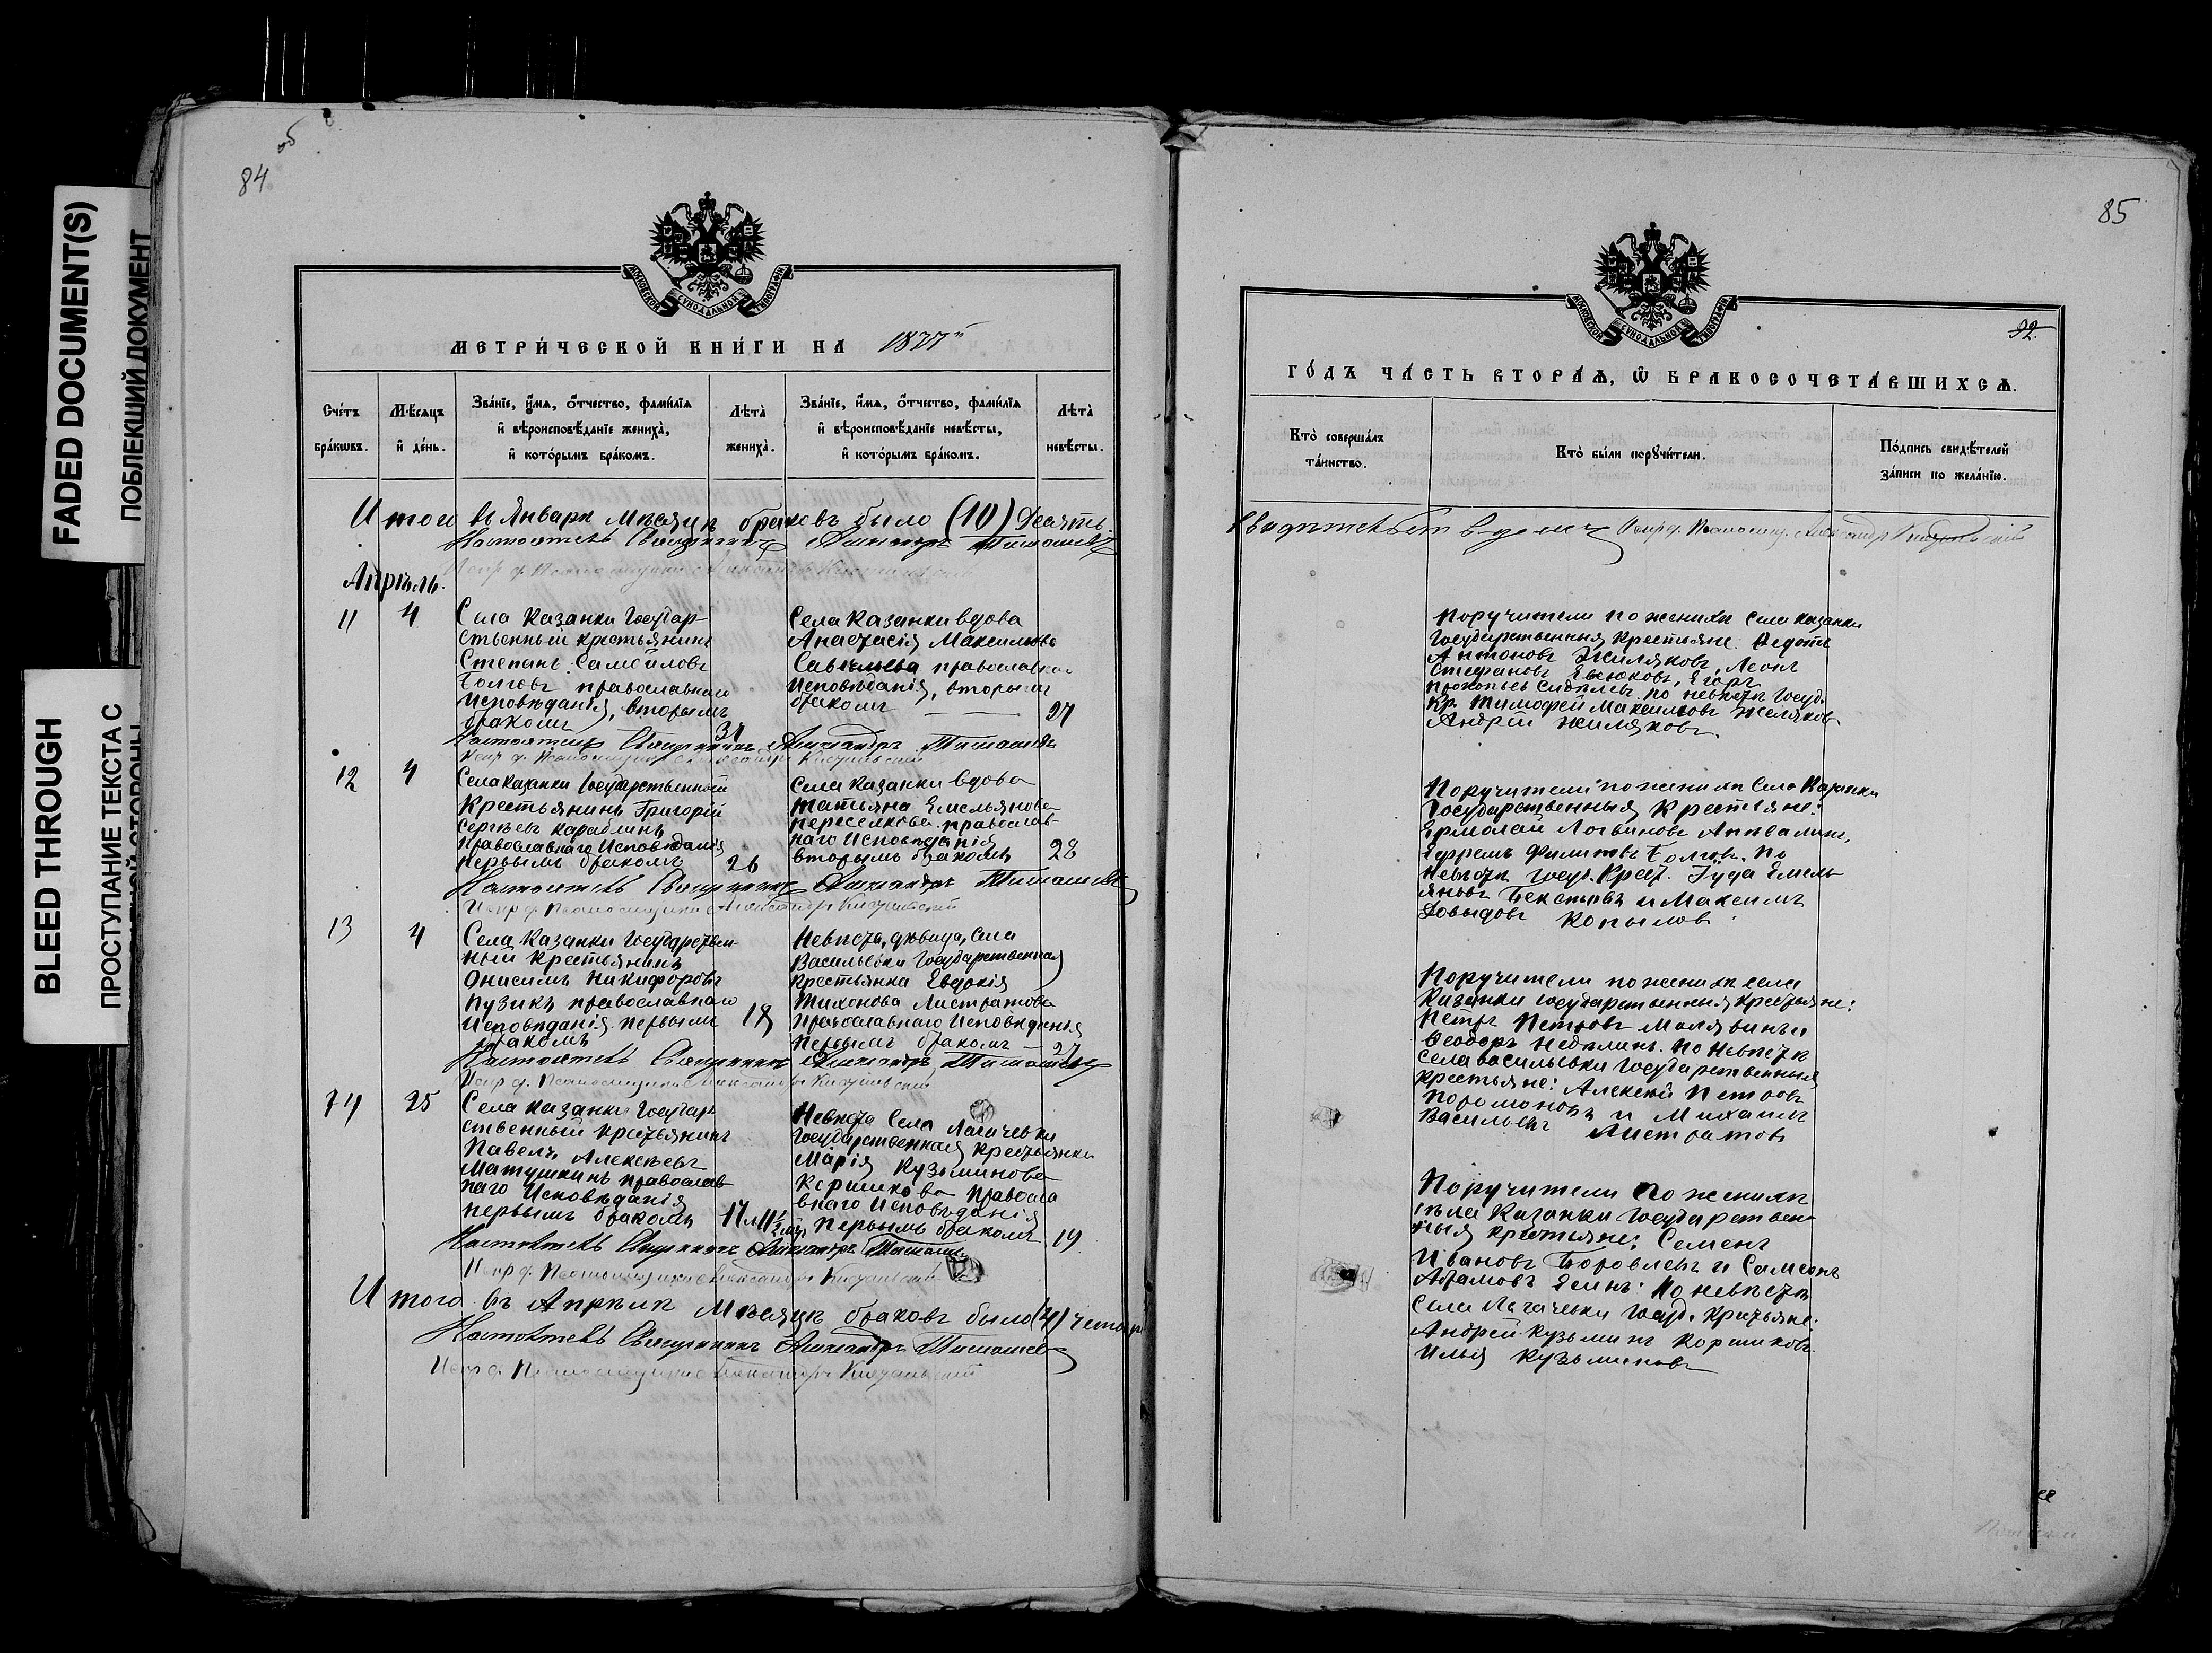 FADED DOCUMENT(S)
ПОБЛЕКШИЙ ДОКУМЕНТ
BLEED THROUGH
ПРОСТУПАНИЕ ТЕКСТА С
84 об
МОСКОВСКОЙ СѴНОДАЛЬНОЙ ТИПОГРАФІИ
МЕТРИ́ЧЕСКОЙ КНИ́ГИ НА 1877й
Сче́тъ бра́кωвъ.
Мѣ́сяцъ и҆ де́нь.
Зва́нїе, и҆́мѧ, ѻ҆́тчество, фами́лїѧ
и҆ вѣроисповѣ́данїе жениха̀,
и҆ кото́рымъ бра́комъ.
Лѣта̀ жениха̀.
Зва́нїе, и҆́мѧ, ѻ҆́тчество, фами́лїѧ
и҆ вѣроисповѣ́данїе невѣ́сты,
и҆ кото́рымъ бра́комъ.
Лѣта̀ невѣ́сты.
Итого въ Январѣ Мѣсяцѣ браковъ было (10) Десять.
Настоятель Священникъ Александръ Тимашевъ
Апрѣль.
11 4
Села Казанки Государ-
ственный крестьянинъ
Степанъ Самойловъ
Болговъ православнаго
Исповѣданія, вторымъ
бракомъ
31
Села Казанки вдова
Анастасія Максимова
Савельева православнаго
Исповѣданія, вторымъ
бракомъ
27
Настоятель Священникъ Александръ Тимашевъ
12 4
Села Казанки Государственный
Крестьянинъ Григорій
Сергѣевъ Караблинъ
Православнаго Исповѣданія
первымъ бракомъ
26
Села Казанки вдова
Татьяна Емельянова
православ-
наго Исповѣданія
вторымъ бракомъ
28
Настоятель Священникъ Александръ Тимашевъ
13 4
Села Казанки Государствен-
ный Крестьянинъ
Онисимъ Никифоровъ
Пузикъ православнаго
Исповѣданія первымъ
бракомъ
18
Невѣста, дѣвица, Села
Васильевки Государственная
Крестьянка Евдокія
Тихонова Листратова
Православнаго Исповѣданія
Первымъ бракомъ
27
Настоятель Священникъ Александръ Тимашевъ
14 25
Села Казанки Государ-
ственный крестьянинъ
Павелъ Алексѣевъ
Матушкинъ православ-
наго Исповѣданія
первымъ бракомъ
Невѣста Села
Государственная Крестьянка
Марія Кузьминова
Коршикова Правосла
внаго Исповѣданія
Первымъ бракомъ
19.
Настоятель Священникъ Александръ Тимашевъ
Итого въ Апрѣлѣ Мѣсяцѣ браковъ было (4) четыре
Настоятель Священникъ Александръ Тимашевъ
85
МОСКОВСКОЙ СѴНОДАЛЬНОЙ ТИПОГРАФІИ
92.
ГО́ДЪ ЧА́СТЬ ВТОРА́Ѧ, Ѽ БРАКОСОЧЕТА́ВШИХСѦ.
Кто̀ соверша́лъ
та́инство.
Кто̀ бы́ли порꙋчи́тели.
По́дпись свидѣ́телей
за́писи по жела́нїю.
Поручители по женихѣ Села Казанки
Государственныя Крестьяне: Ѳедотъ
Антоновъ Жиляковъ, Леонъ
Стефановъ Евсюковъ, Егоръ
Прокопьевъ по невѣстѣ Госуд.
Кр. Тимофей Максимовъ Желяковъ
Андрей Жиляковъ.
Поручители по женихѣ Села Казанки
Государственныя Крестьяне:
Ермолай Логвиновъ
Ефремъ Филиповъ Болговъ. По
Невѣстѣ Госуд. Крест. Іуда Емель-
яновъ и Максимъ
Довыдовъ Копыловъ.
Поручители по женихѣ села
Казанки Государственныя Крестьяне:
Петръ Петровъ Малявинъ и
Ѳеодоръ Недѣлинъ. По Невѣстѣ
Села Васильевки Государственныя
Крестьяне: Алексѣй Петровъ
и Михаилъ
Васильевъ Листратовъ
Поручители По женихѣ
Села Казанки Государствен-
ныя Крестьяне: Семенъ
Ивановъ Боровлевъ и Самсонъ
Абрамовъ По невѣстѣ
Села Госуд. Крестьяне:
Андрей Кузьминъ Коршиковъ
Илья Кузьминовъ